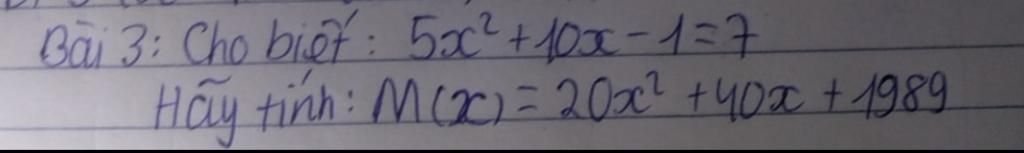 Bài 3: Cho biết: 5x² + 10x - 1 = 7
Hãy tính: M(x) = 20x² + 40x + 1989